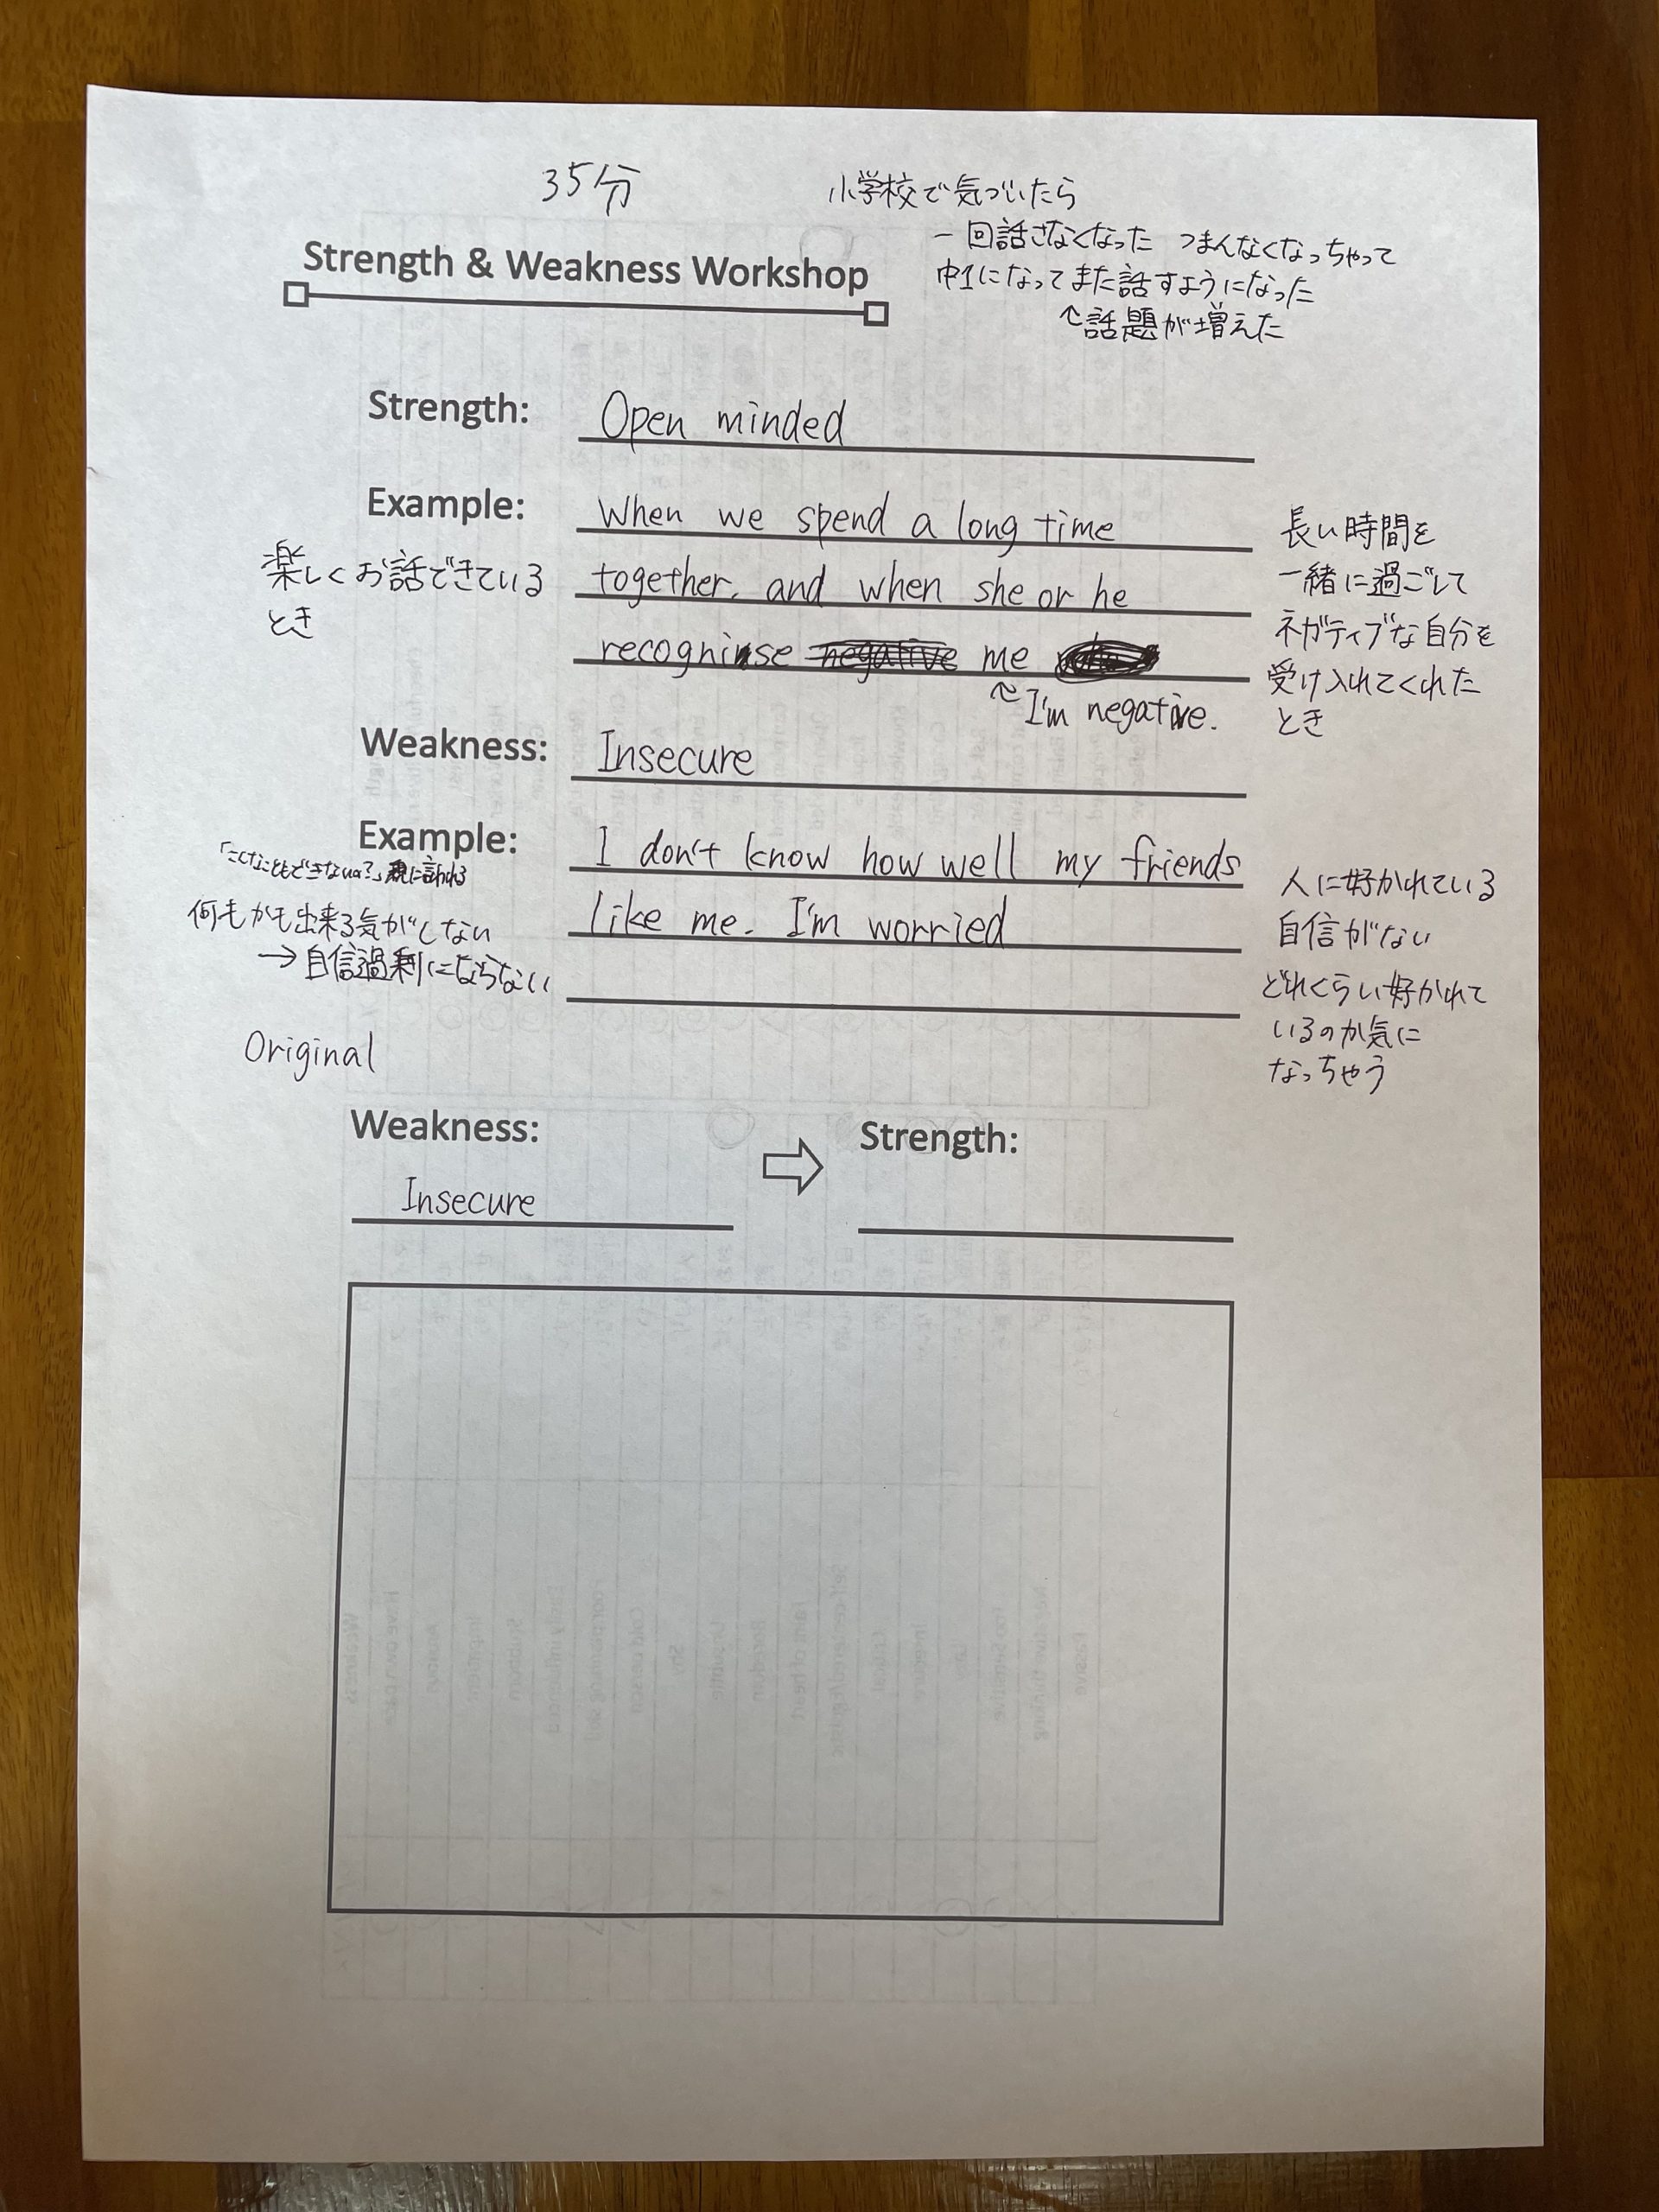 35分
小学校で気づいたら
一回話さなくなった つまんなくなっちゃって
中1になってまた話すようになった
↑話題が増えた
Strength & Weakness Workshop
Strength: Open minded
Example: When we spend a long time
together. and when she or he
recogninse negative me
I'm negative.
楽しくお話できている
とき
長い時間を
一緒に過ごして
ネガティブな自分を
受け入れてくれた
とき
Weakness: Insecure
Example: I don't know how well my friends
like me. I'm worried
「こんなこともできないの?」親に言われる
何もかも出来る気がしない
→自信過剰にならない
人に好かれている
自信がない
どれくらい好かれて
いるのか気に
なっちゃう
Original
Weakness: ⇨ Strength:
Insecure